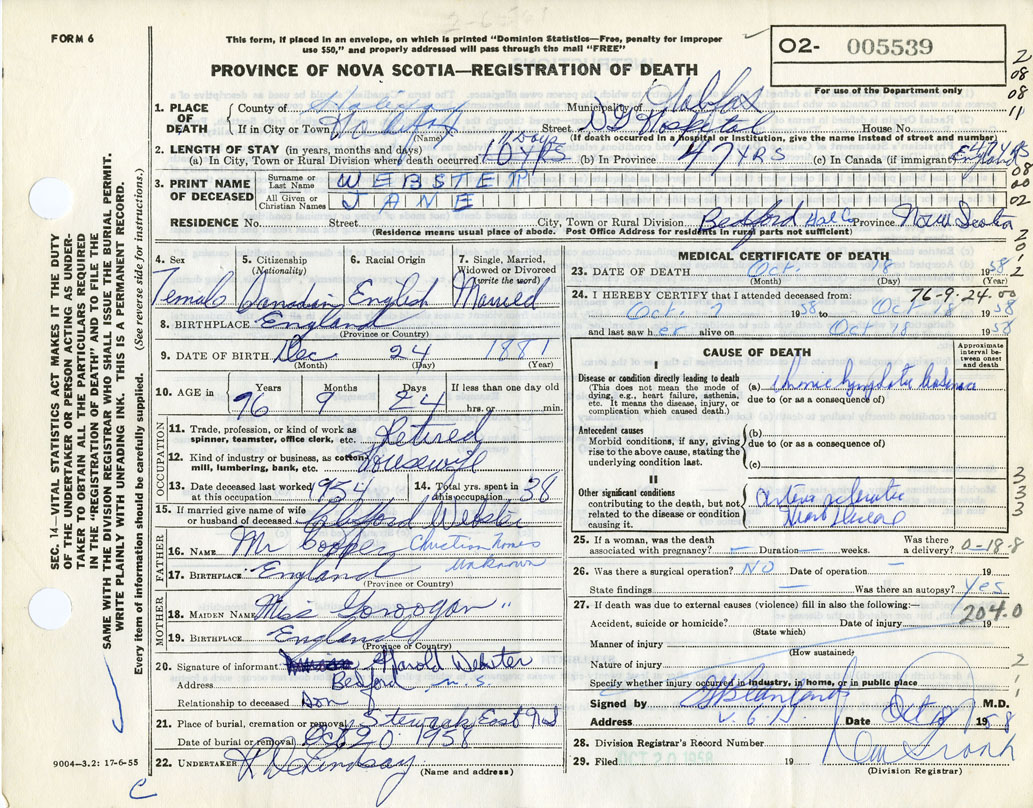 FORM 6
This form, if placed in an envelope, on which is printed "Dominion Statistics—Free, penalty for improper
use $50," and properly addressed will pass through the mail "FREE"
O2- 005539
For use of the Department only
PROVINCE OF NOVA SCOTIA—REGISTRATION OF DEATH
2
08
08
11
1. PLACE OF DEATH
County of Halifax Municipality of Halifax
If in City or Town Halifax Street Hospital House No.
(Name) (If death occurred in a hospital or institution, give the name instead of street and number)
2. LENGTH OF STAY (in years, months and days)
(a) In City, Town or Rural Division where death occurred 10 YRS (b) In Province 47 YRS (c) In Canada (if immigrant) 47 YRS England
08
00
02
3. PRINT NAME OF DECEASED
Surname or Last Name WEBSTER
All Given or Christian Names JANE
RESIDENCE No. Street City, Town or Rural Division Bedford Hal Co Province Nova Scotia
(Residence means usual place of abode. Post Office Address for residents in rural parts not sufficient)
SEC. 14—VITAL STATISTICS ACT MAKES IT THE DUTY
OF THE UNDERTAKER OR PERSON ACTING AS UNDER-
TAKER TO OBTAIN ALL THE PARTICULARS REQUIRED
IN THE "REGISTRATION OF DEATH" AND TO FILE THE
SAME WITH THE DIVISION REGISTRAR WHO SHALL ISSUE THE BURIAL PERMIT.
WRITE PLAINLY WITH UNFADING INK. THIS IS A PERMANENT RECORD.
Every item of information should be carefully supplied. (See reverse side for instructions.)
4. Sex
Female
5. Citizenship
(Nationality)
Canadian
6. Racial Origin
English
7. Single, Married,
Widowed or Divorced
(write the word)
Married
8. BIRTHPLACE England
(Province or Country)
9. DATE OF BIRTH Dec 24 1881
(Month) (Day) (Year)
10. AGE in
Years Months Days If less than one day old
76 9 24 hrs. or min.
OCCUPATION
11. Trade, profession, or kind of work as
spinner, teamster, office clerk, etc. Retired
12. Kind of industry or business, as cotton-
mill, lumbering, bank, etc. Housewife
13. Date deceased last worked
at this occupation 1954
14. Total yrs. spent in
this occupation 38
15. If married give name of wife
or husband of deceased Clifford Webster
FATHER
16. NAME Mr Cooper Christian Names
unknown
17. BIRTHPLACE England
(Province or Country)
MOTHER
18. MAIDEN NAME Miss "
19. BIRTHPLACE England
(Province or Country)
20. Signature of informant Harold Webster
Address Bedford N.S.
Relationship to deceased Son
21. Place of burial, cremation or removal Stewiacke East N.S
Date of burial or removal Oct 20 1958
22. UNDERTAKER Lindsay
(Name and address)
9004—3.2: 17-6-55
C
MEDICAL CERTIFICATE OF DEATH
23. DATE OF DEATH Oct. 18 1958
(Month) (Day) (Year)
24. I HEREBY CERTIFY that I attended deceased from: 76-9-24.00
Oct. 7 1958 to Oct 18 1958
and last saw her alive on Oct 18 1958
CAUSE OF DEATH
Approximate
interval be-
tween onset
and death
I
Disease or condition directly leading to death
(This does not mean the mode of
dying, e.g., heart failure, asthenia,
etc. It means the disease, injury, or
complication which caused death.)
(a) Chronic lymphatic leukemia
due to (or as a consequence of)
Antecedent causes
Morbid conditions, if any, giving
rise to the above cause, stating the
underlying condition last.
(b)
due to (or as a consequence of)
(c)
II
Other significant conditions
contributing to the death, but not
related to the disease or condition
causing it.
Arteriosclerotic
Heart Disease
3
3
3
25. If a woman, was the death
associated with pregnancy? — Duration — weeks. Was there
a delivery? 0-18-8
26. Was there a surgical operation? NO Date of operation —
State findings — Was there an autopsy? Yes
27. If death was due to external causes (violence) fill in also the following:—
204.0
Accident, suicide or homicide? Date of injury 19
(State which)
Manner of injury
(How sustained)
Nature of injury
Specify whether injury occurred in industry, in home, or in public place
Signed by M.D.
Address V.G.H Date Oct 1958
28. Division Registrar's Record Number
29. Filed OCT 20 1958 19
(Division Registrar)